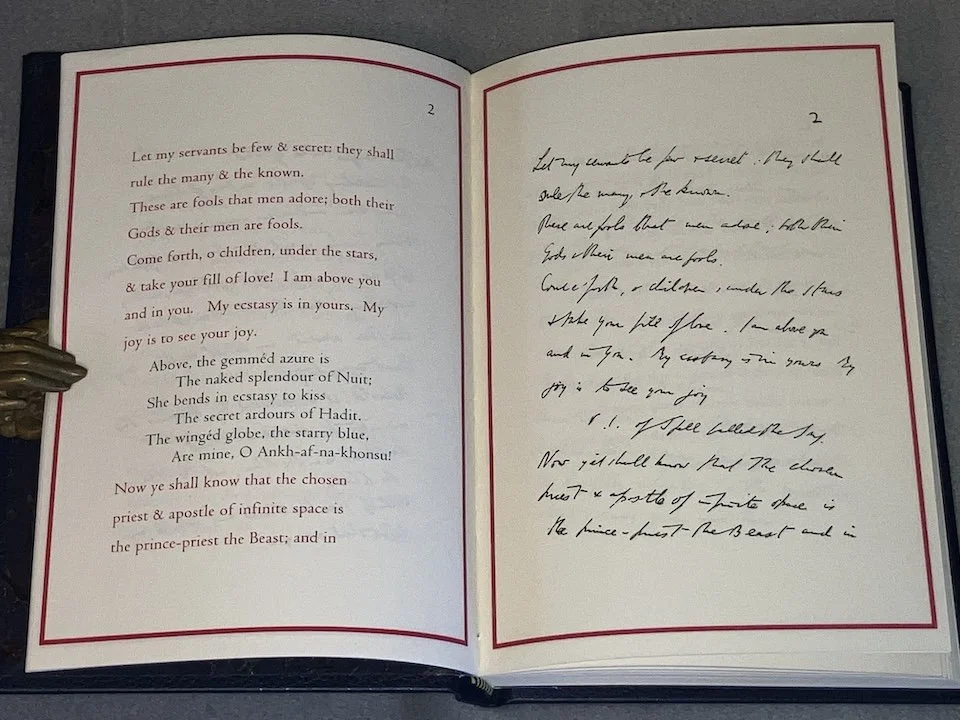 2
Let my servants be few & secret: they shall
rule the many & the known.
These are fools that men adore; both their
Gods & their men are fools.
Come forth, o children, under the stars,
& take your fill of love! I am above you
and in you. My ecstasy is in yours. My
joy is to see your joy.
Above, the gemméd azure is
The naked splendour of Nuit;
She bends in ecstasy to kiss
The secret ardours of Hadit.
The wingéd globe, the starry blue,
Are mine, O Ankh-af-na-khonsu!
Now ye shall know that the chosen
priest & apostle of infinite space is
the prince-priest the Beast; and in
2
Let my servants be few & secret : they shall
rule the many & the known.
These are fools that men adore ; both their
Gods & their men are fools.
Come forth, o children, under the stars
& take your fill of love. I am above you
and in you. My ecstasy is in yours My
joy is to see your joy
V. 1. of Spell called the Song.
Now ye shall know that the chosen
priest & apostle of infinite space is
the prince-priest the Beast and in